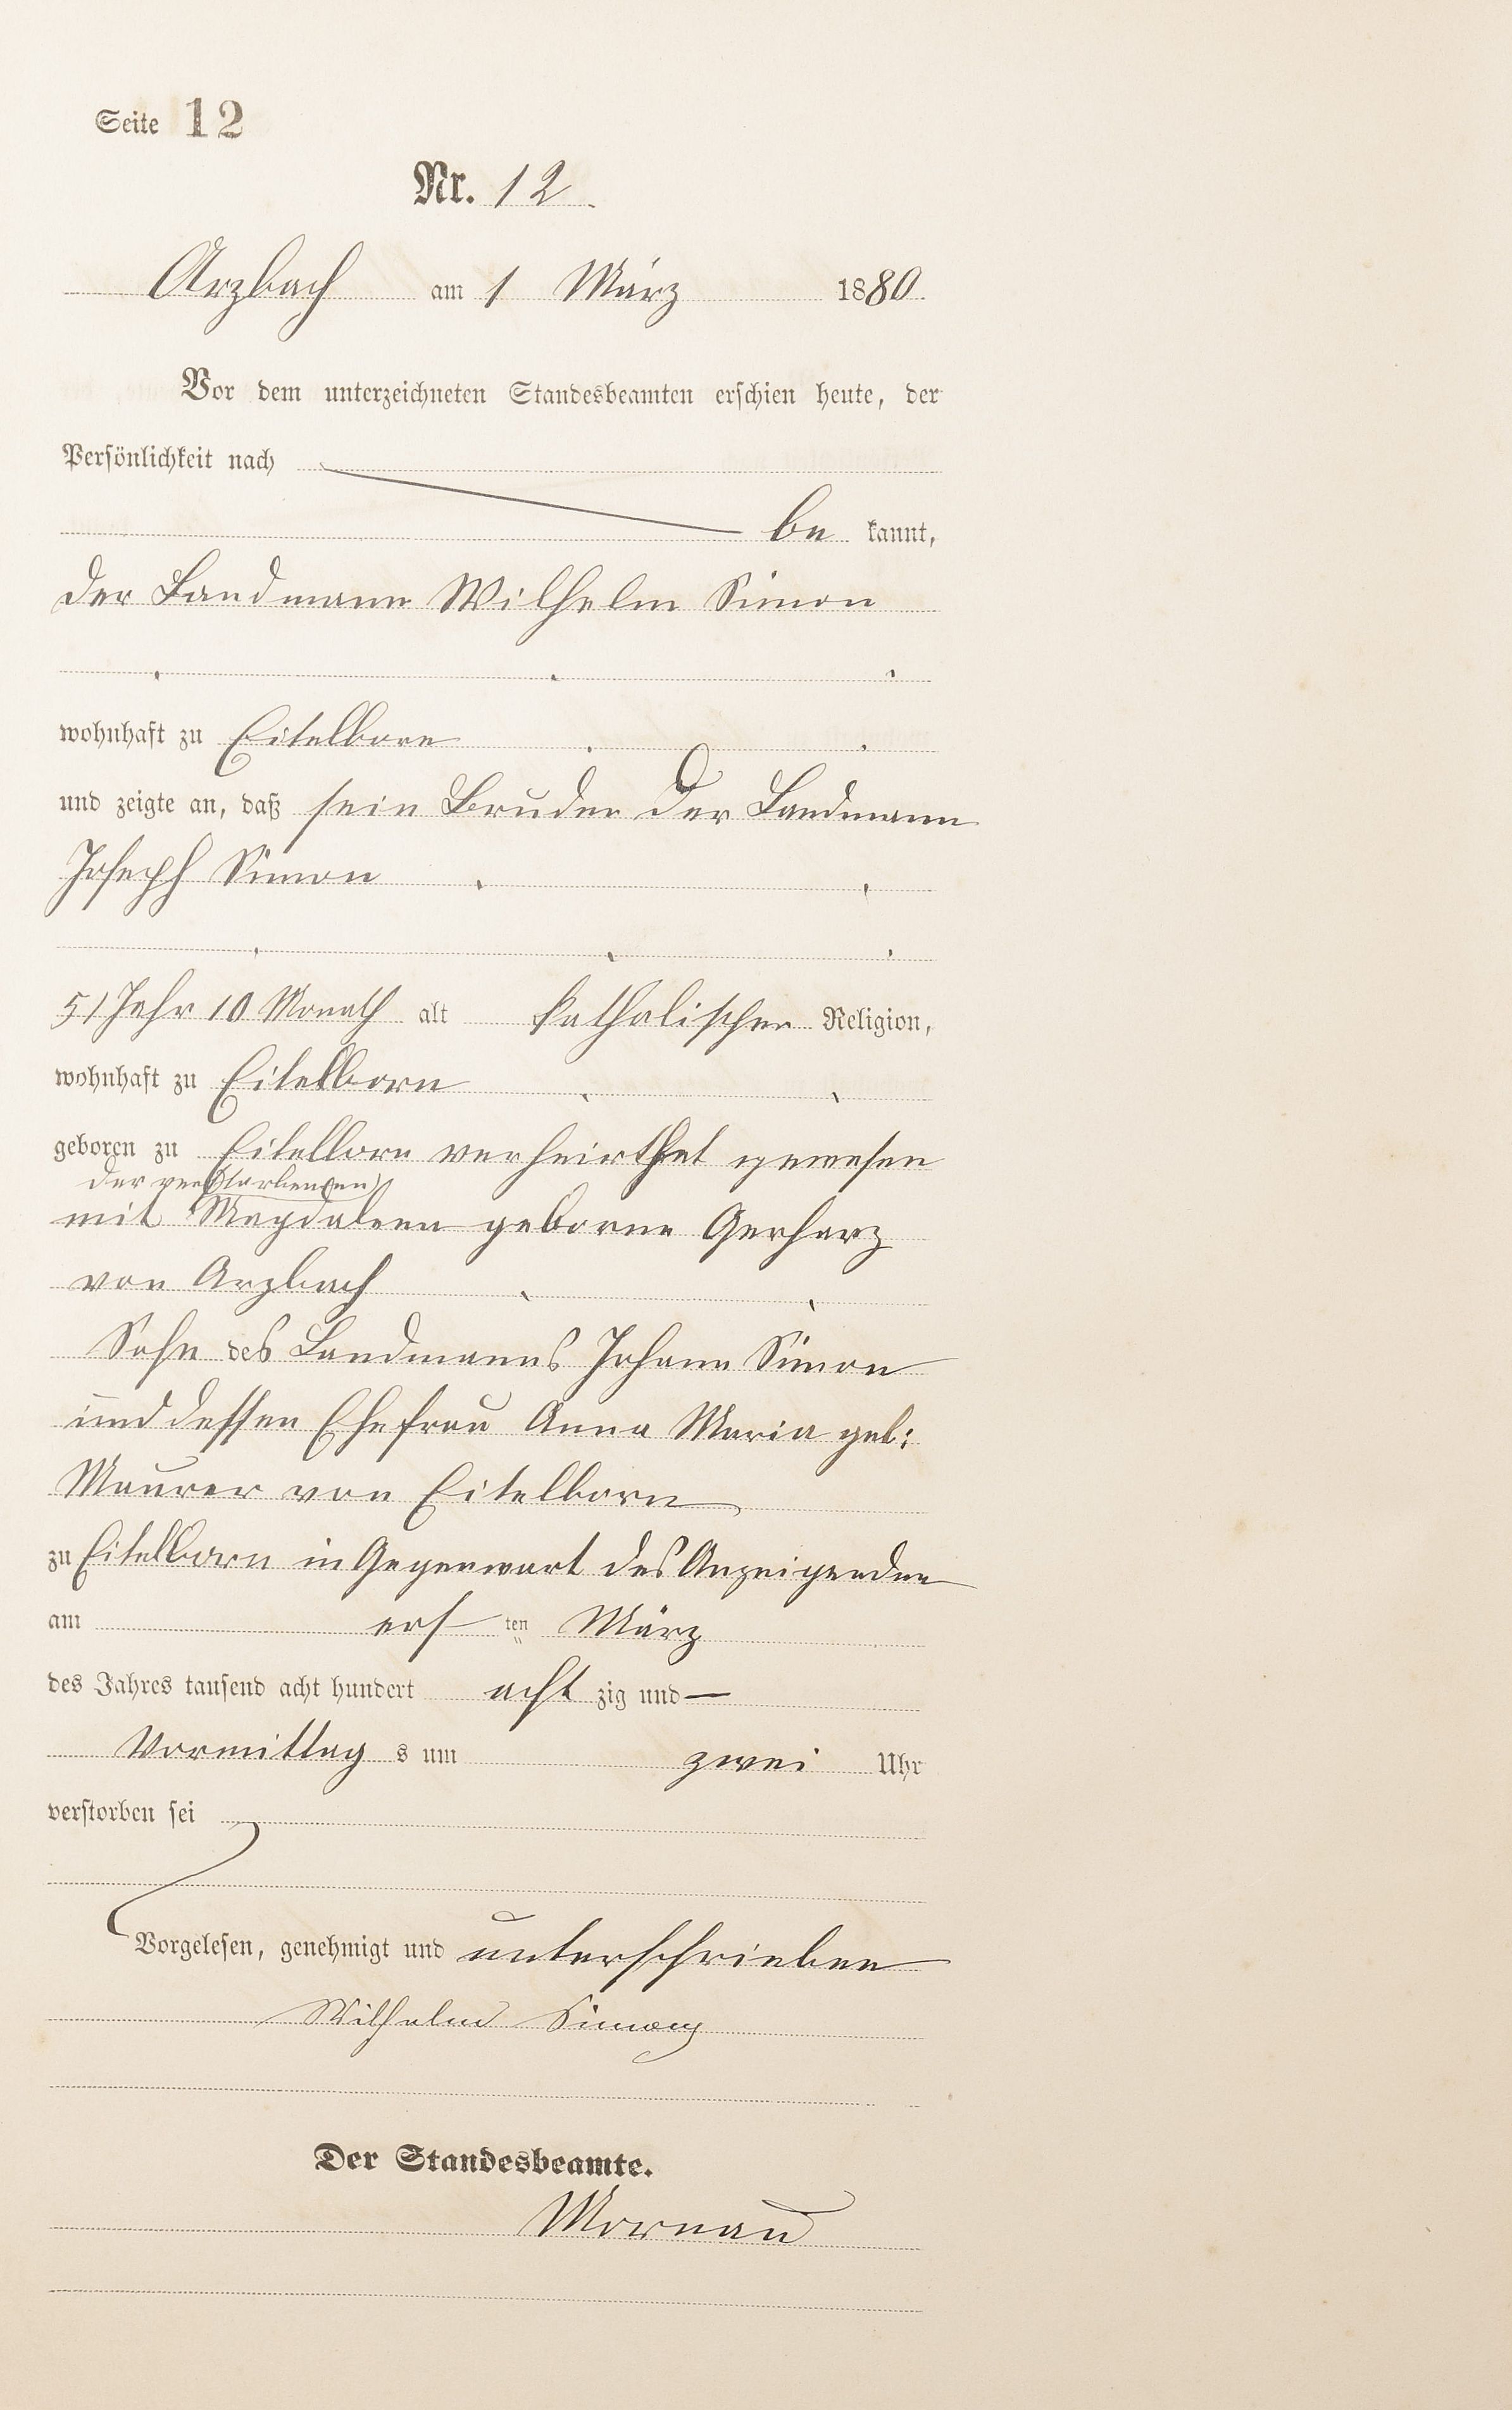 Seite 12
Nr. 12.
Arzbach am 1 März 1880.
Vor dem unterzeichneten Standesbeamten erschien heute, der
Persönlichkeit nach
be kannt,
der Landmann Wilhelm Simon
wohnhaft zu Eitelborn
und zeigte an, daß sein Bruder der Landmann
Joseph Simon
51 Jahr 10 Monath alt katholischer Religion,
wohnhaft zu Eitelborn
geboren zu Eitelborn verheirthet gewesen
der verstorbenen
mit Magdalena geborne Gerharz
von Arzbach
Sohn des Landmanns Johann Simon
und dessen Ehefrau Anna Maria geb:
Maurer von Eitelborn
zu Eitelborn in Gegenwart des Anzeigenden
am ers ten März
des Jahres tausend acht hundert acht zig und
Vormittag s um zwei Uhr
verstorben sei
Vorgelesen, genehmigt und unterschrieben
Wilhelm Simon
Der Standesbeamte.
Mornau